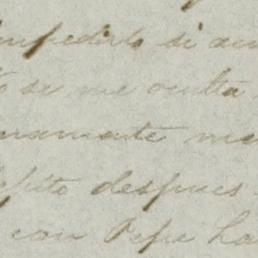 impedirlo si aun
se me oculta
aramente me
pito despues
con Pepe ha